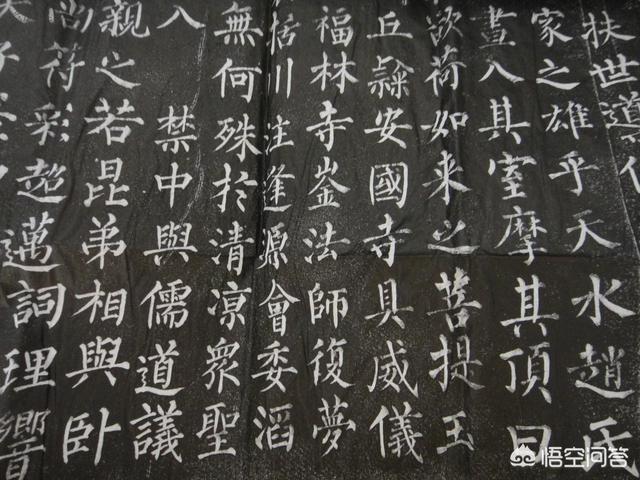 扶世導化
家之雄乎天水趙氏
晝入其室摩其頂曰
欲荷如來之菩提
丘隸安國寺具威儀
福林寺崟法師復夢
括川注逢源會委滔
無何殊於清凉眾聖
入禁中與儒道議
親之若昆弟相與臥
尚符彩超邁詞理響
悟空问答